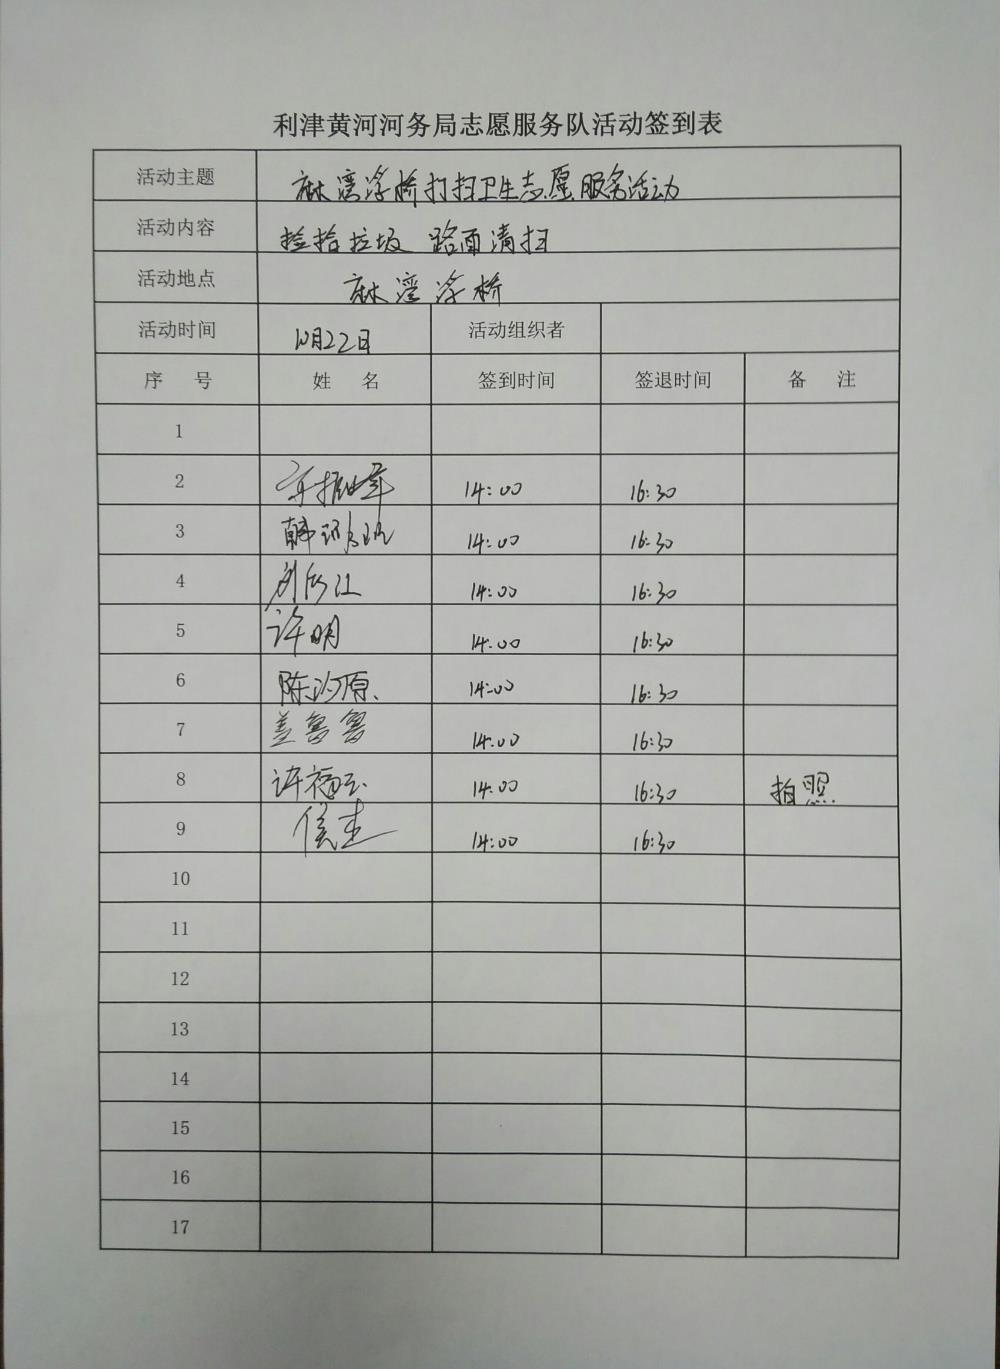 利津黄河河务局志愿服务队活动签到表
活动主题 麻湾浮桥打扫卫生志愿服务活动
活动内容 捡拾垃圾 路面清扫
活动地点 麻湾浮桥
活动时间 10月22日 活动组织者
序 号 姓 名 签到时间 签退时间 备 注
1
2 14:00 16:30
3 韩 14:00 16:30
4 刘 14:00 16:30
5 许明 14:00 16:30
6 陈 原 14:00 16:30
7 盖鲁鲁 14:00 16:30
8 许福 14:00 16:30 拍照
9 侯杰 14:00 16:30
10
11
12
13
14
15
16
17